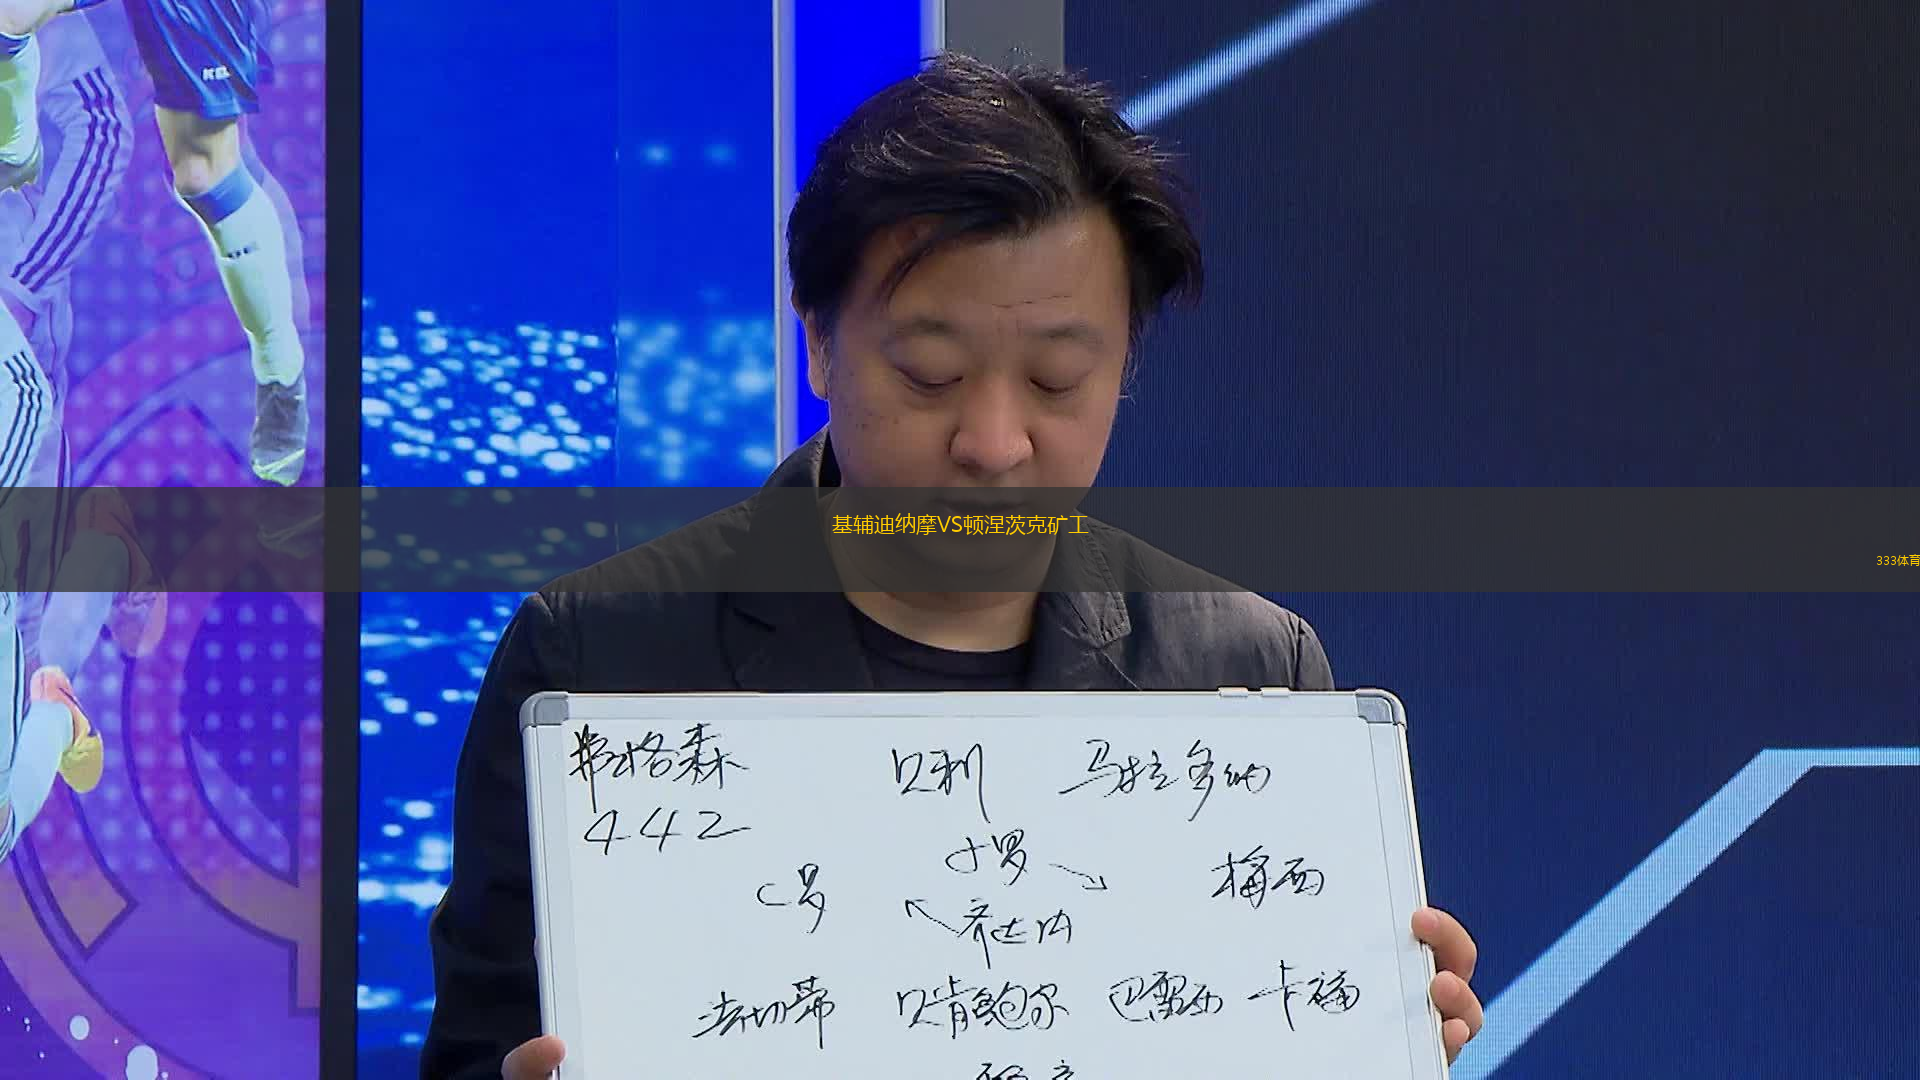 KEL
基辅迪纳摩VS顿涅茨克矿工
333体育
弗格森 贝利 马拉多纳
442
小罗
C罗 梅西
齐达内
法切蒂 贝肯鲍尔 巴雷西 卡福